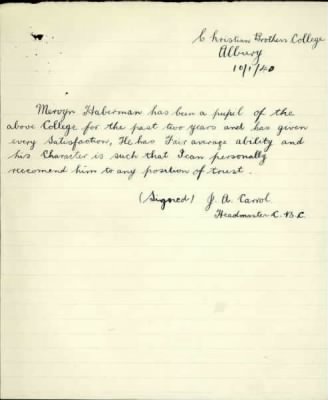 Christian Brothers College
Albury
10/1/40
Mervyn Haberman has been a pupil of the
above College for the past two years and has given
every Satisfaction, He has Fair average ability and
his Character is such that I can personally
recomend him to any position of trust.
(Signed) J. A. Carrol
Headmaster C. B. C.